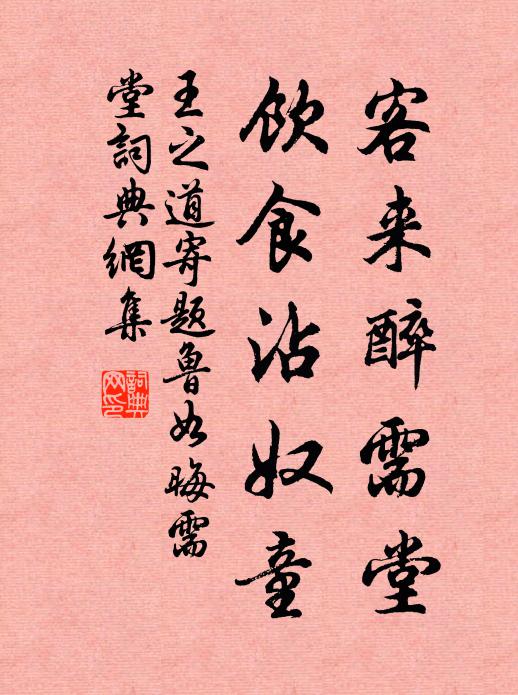 客来醉需堂
飲食沾奴童
王之道寄題魯如晦需
堂詞典網集
詞典網印